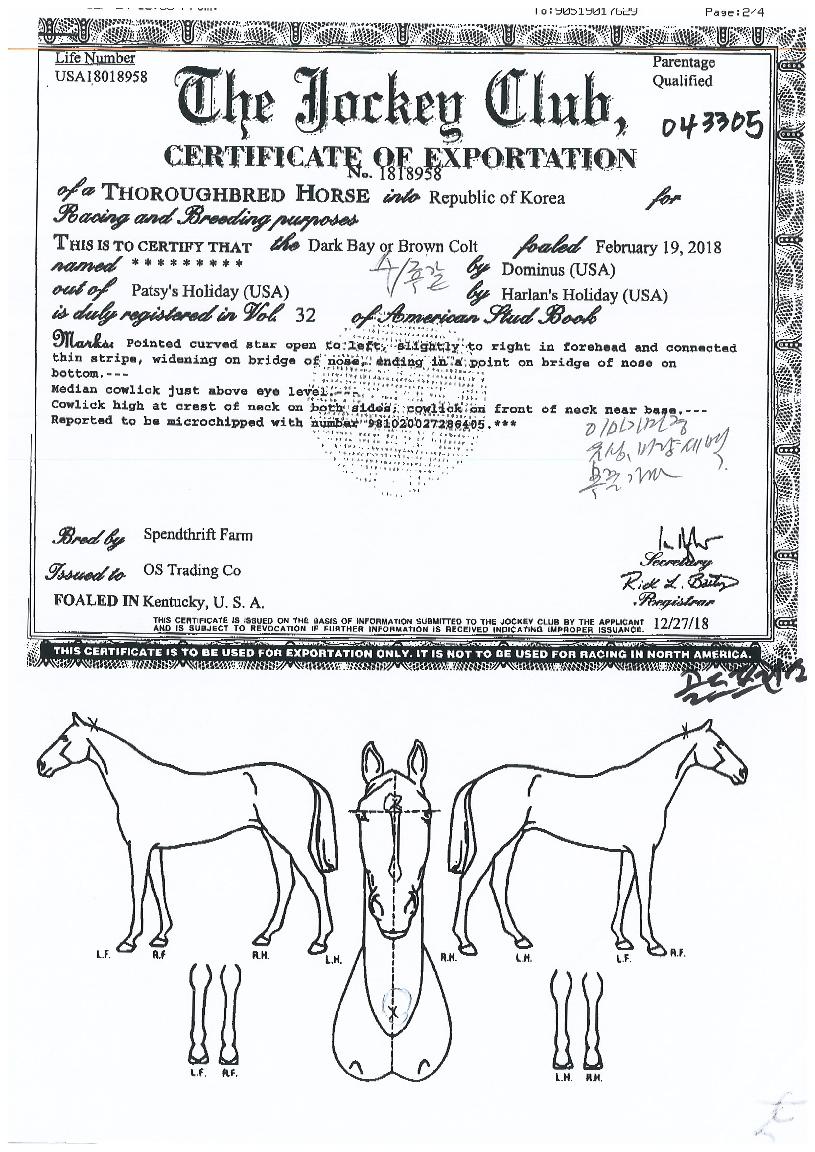 To:90519017629 Page:2/4
Life Number
USA18018958
Parentage
Qualified
The Jockey Club,
043305
CERTIFICATE OF EXPORTATION
No. 1818958
of a THOROUGHBRED HORSE into Republic of Korea for
Racing and Breeding purposes
THIS IS TO CERTIFY THAT the Dark Bay or Brown Colt foaled February 19, 2018
named * * * * * * * * * by Dominus (USA)
out of Patsy's Holiday (USA) by Harlan's Holiday (USA)
is duly registered in Vol. 32 of American Stud Book
Marks: Pointed curved star open to left, slightly to right in forehead and connected
thin stripe, widening on bridge of nose, ending in a point on bridge of nose on
bottom.---
Median cowlick just above eye level.---
Cowlick high at crest of neck on both sides; cowlick on front of neck near base.---
Reported to be microchipped with number 981020027286405.***
Bred by Spendthrift Farm
Secretary
Issued to OS Trading Co
Rick L. Bailey
Registrar
FOALED IN Kentucky, U. S. A.
THIS CERTIFICATE IS ISSUED ON THE BASIS OF INFORMATION SUBMITTED TO THE JOCKEY CLUB BY THE APPLICANT
AND IS SUBJECT TO REVOCATION IF FURTHER INFORMATION IS RECEIVED INDICATING IMPROPER ISSUANCE. 12/27/18
THIS CERTIFICATE IS TO BE USED FOR EXPORTATION ONLY. IT IS NOT TO BE USED FOR RACING IN NORTH AMERICA.
L.F. R.F R.H. L.H. R.H. L.H. L.F. R.F.
L.F. R.F. L.H. R.H.